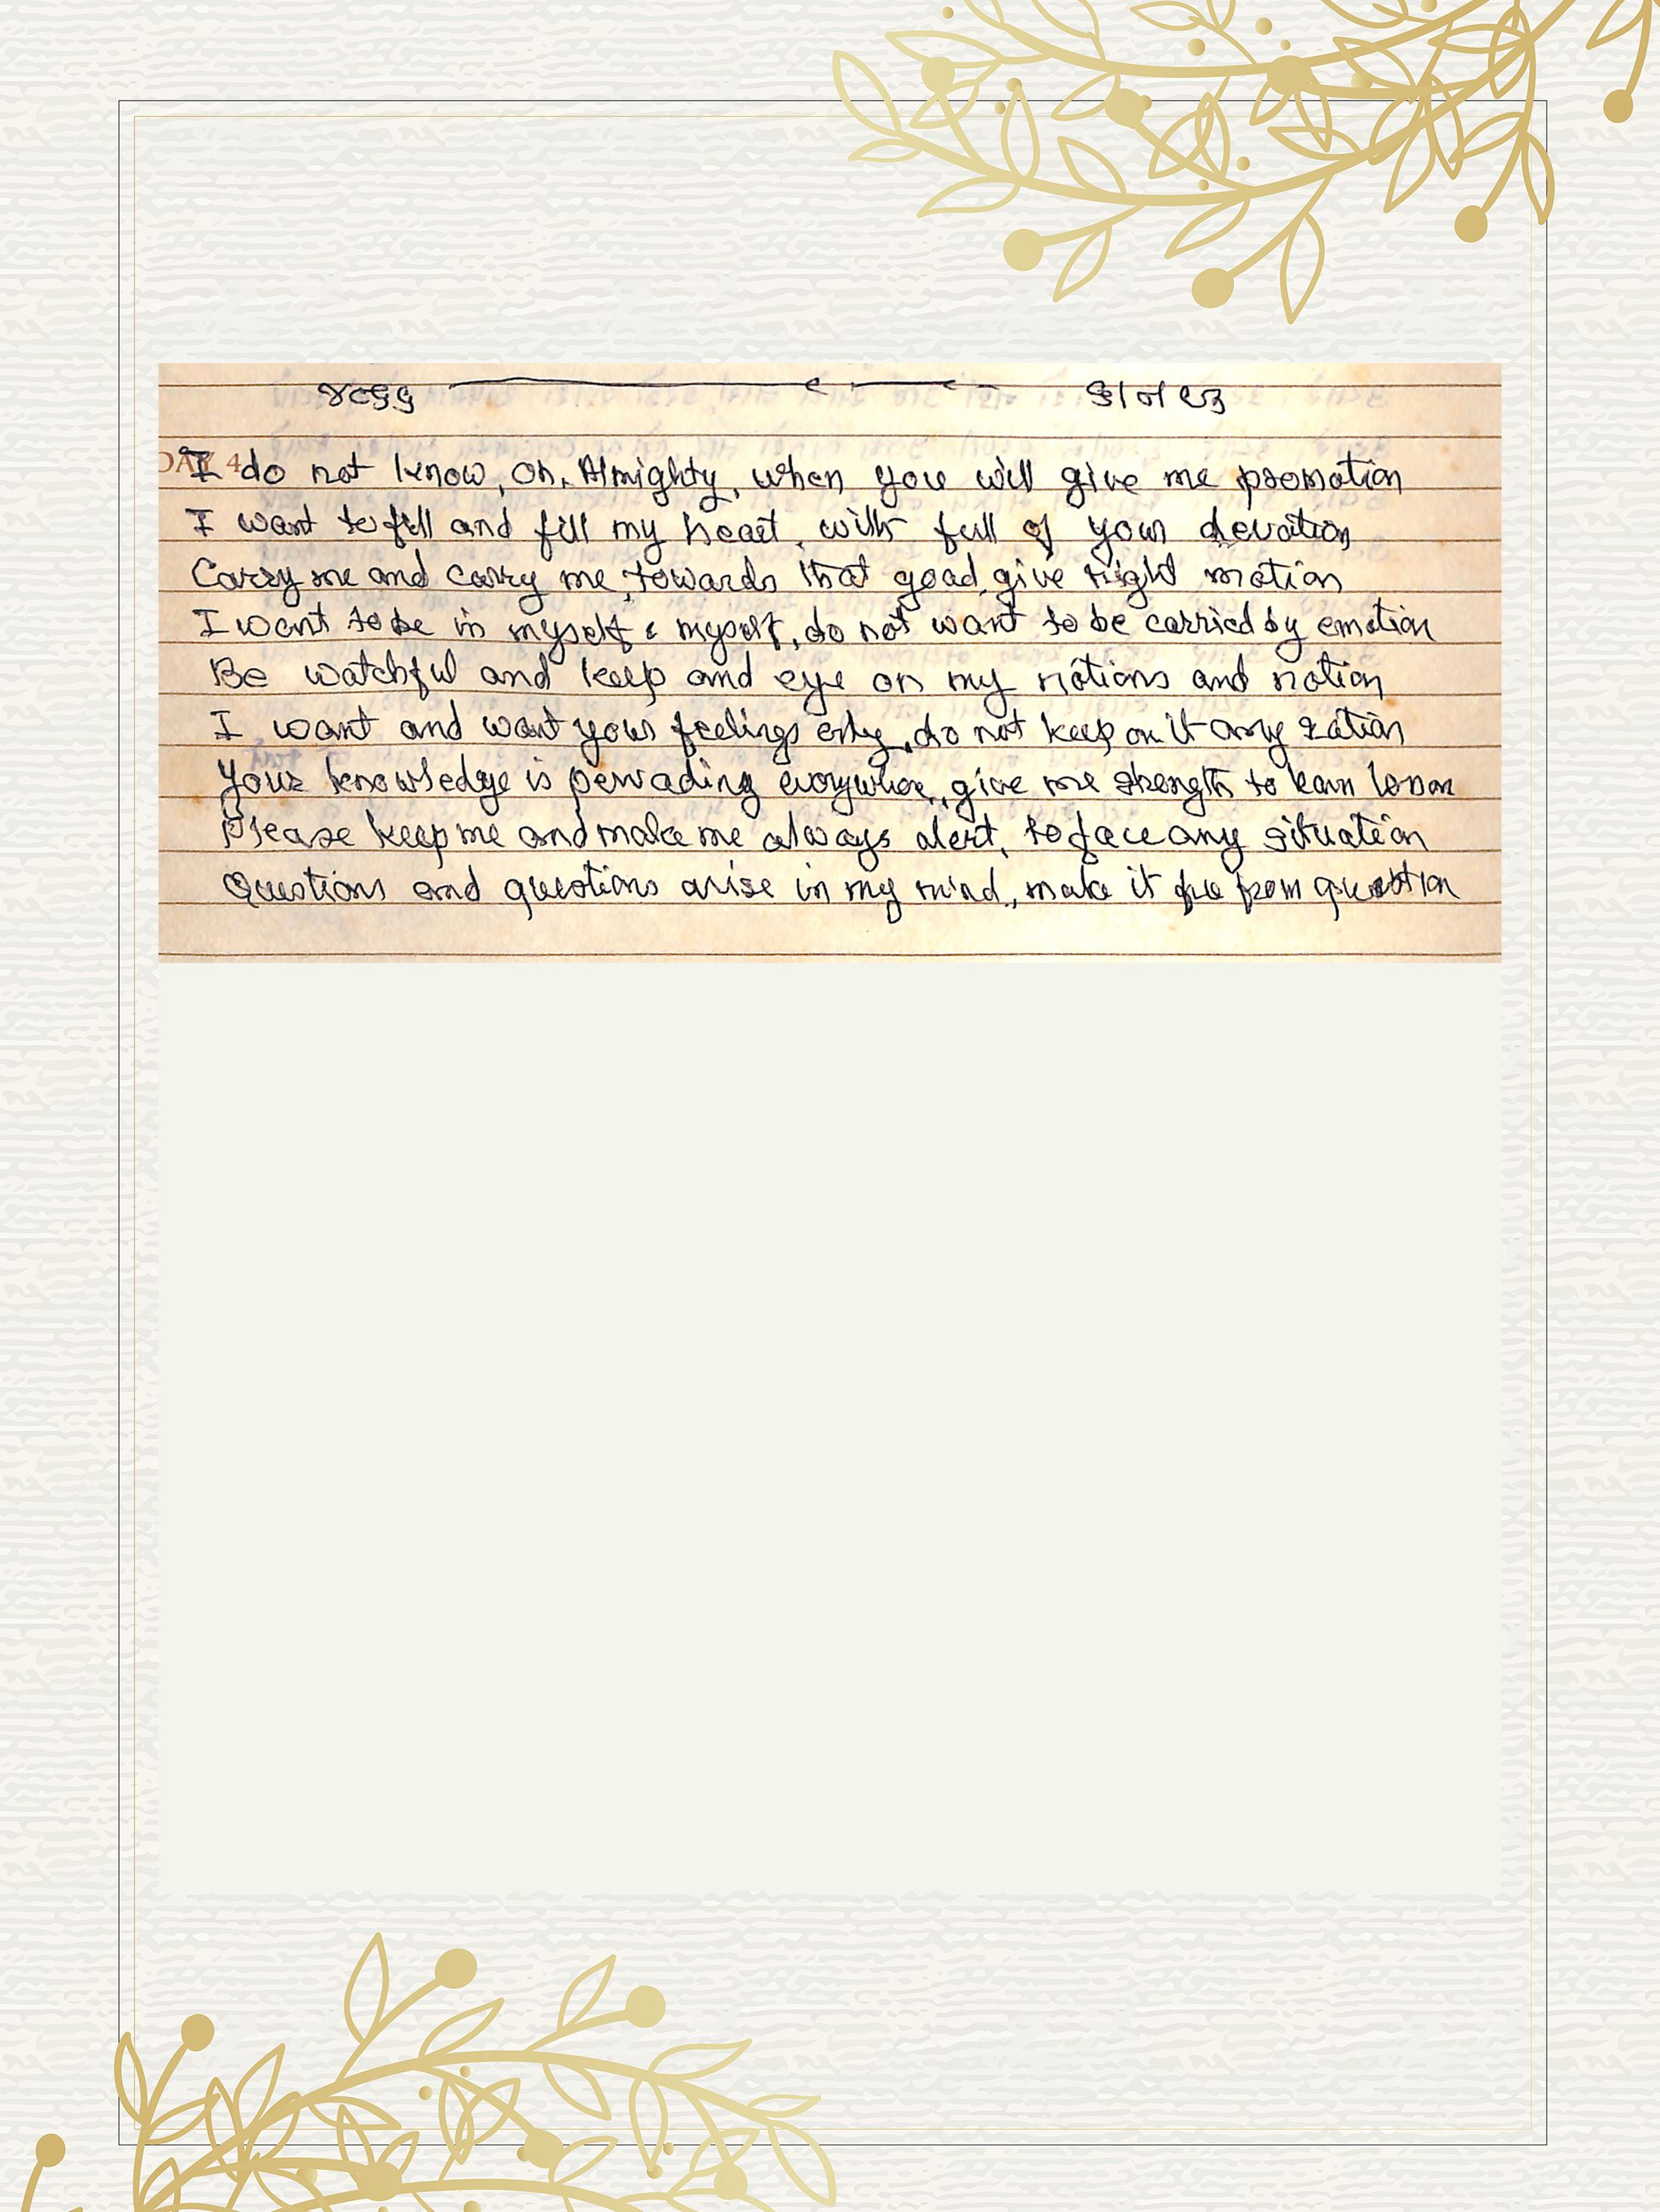 I do not know, Oh, Almighty, when you will give me promotion
I want to fill and fill my heart, with full of your devotion
Carry me and carry me, towards that goad, give right motion
I want to be in myself & myself, do not want to be carried by emotion
Be watchful and keep and eye on my notions and notion
I want and want your feelings only, do not keep on it any
Your knowledge is pervading everywhere, give me strength to learn lesson
Please keep me and make me always alert, to face any situation
Questions and questions arise in my mind, make it free from question